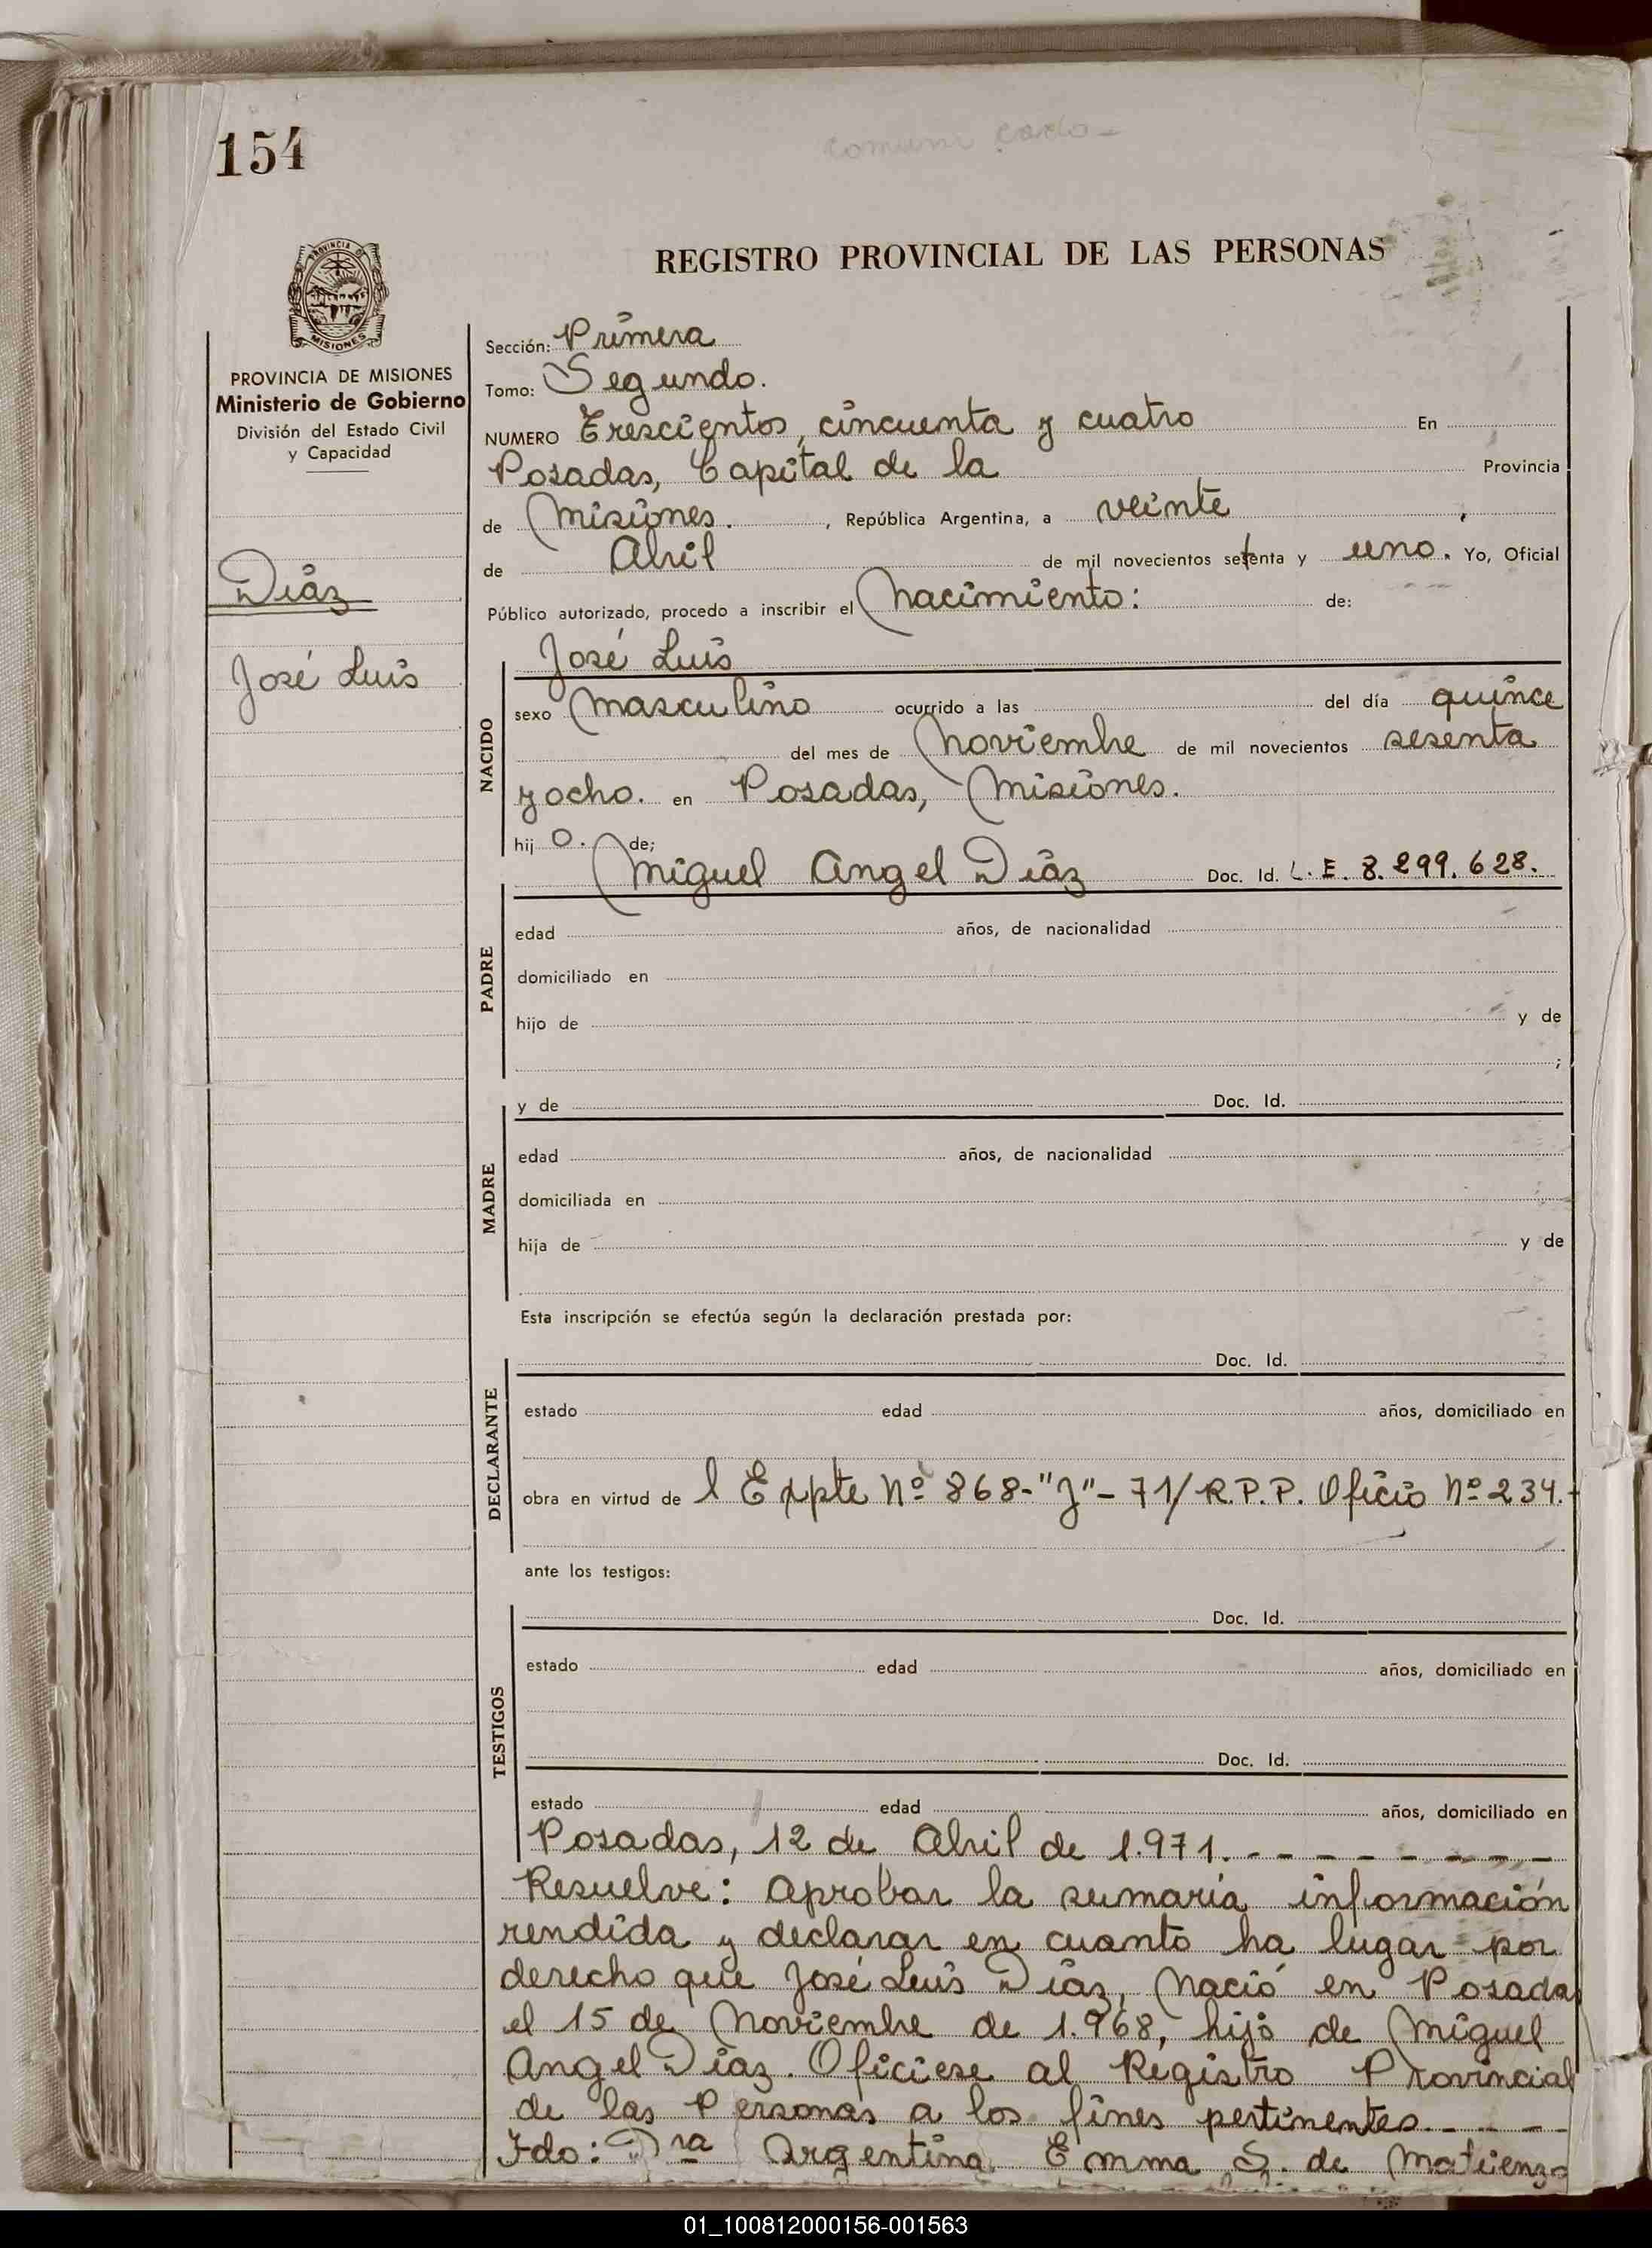 154
REGISTRO PROVINCIAL DE LAS PERSONAS
PROVINCIA DE
MISIONES
PROVINCIA DE MISIONES
Ministerio de Gobierno
División del Estado Civil
y Capacidad
Diáz
José Luis
Sección: Primera
Tomo: Segundo.
NUMERO Trescientos, cincuenta y cuatro En
Posadas, Capital de la Provincia
de Misiones. , República Argentina, a veinte
de Abril de mil novecientos setenta y uno. Yo, Oficial
Público autorizado, procedo a inscribir el Nacimiento: de:
José Luis
NACIDO
sexo Masculino ocurrido a las del día quince
del mes de Noviembre de mil novecientos sesenta
y ocho. en Posadas, Misiones.
hij o. de;
Miguel Angel Diáz Doc. Id. L. E. 8.299.628.
PADRE
edad años, de nacionalidad
domiciliado en
hijo de y de
;
y de Doc. Id.
MADRE
edad años, de nacionalidad
domiciliada en
hija de y de
Esta inscripción se efectúa según la declaración prestada por:
Doc. Id.
DECLARANTE
estado edad años, domiciliado en
obra en virtud de l Expte Nº 868-"J"-71/R.P.P. Oficio Nº 234.-
ante los testigos:
Doc. Id.
TESTIGOS
estado edad años, domiciliado en
Doc. Id.
estado edad años, domiciliado en
Posadas, 12 de Abril de 1.971. - - - - - - - -
Resuelve: Aprobar la sumaria información
rendida y declarar en cuanto ha lugar por
derecho que José Luis Diaz, Nació en Posadas
el 15 de Noviembre de 1.968, hijo de Miguel
Angel Diaz. Oficiese al Registro Provincial
de las Personas a los fines pertinentes. - - -
Fdo: Dra Argentina Emma S. de Matienzo
01_100812000156-001563